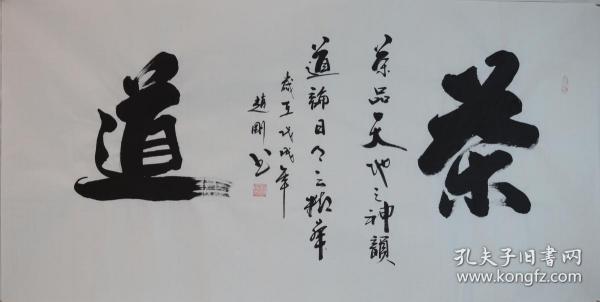 茶
茶品天地之神韻
道論日月之精華
歲在戊戌年
趙剛书
道
孔夫子旧书网
www.kongfz.com